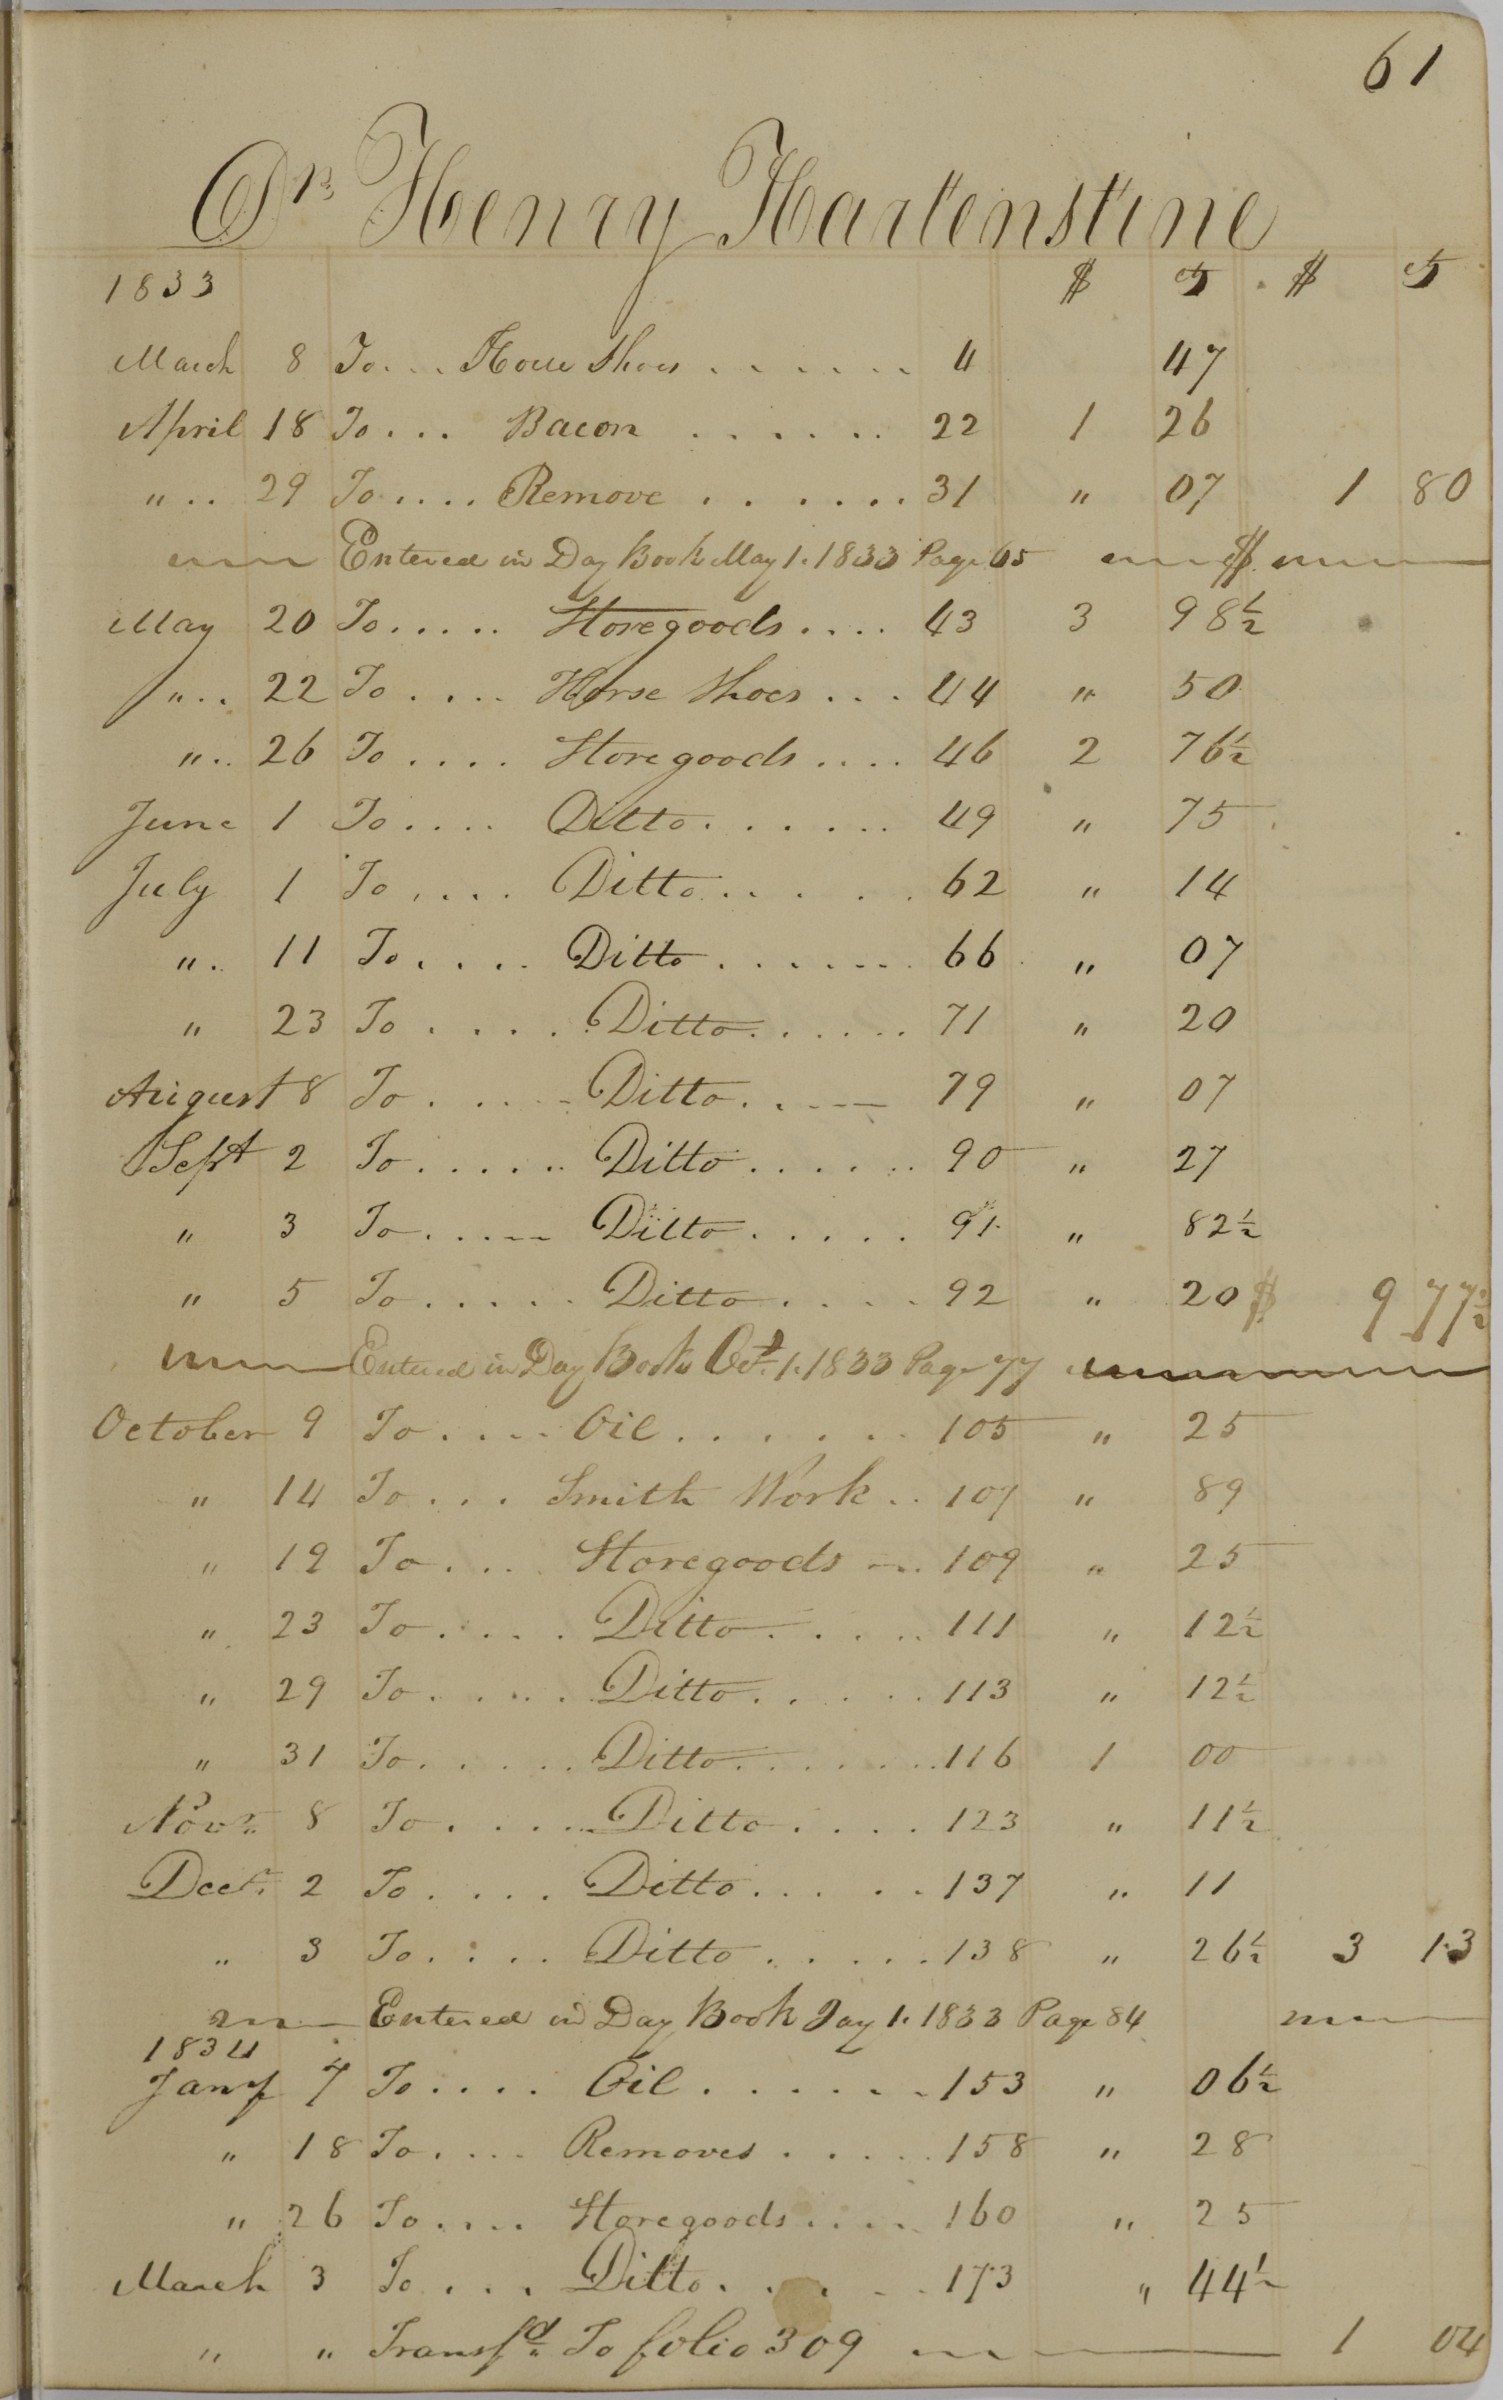 61
Dr. Henry Hartenstine
1833 $ cts $ cts
March 8 To... Horse Shoes ....... 4 47
April 18 To... Bacon ...... 22 1 26
" .. 29 To.... Remove ...... 31 " 07 1 80
Entered in Day Book May 1. 1833 Page 65 $
May 20 To..... Storegoods .... 43 3 98½
" .. 22 To .... Horse Shoes ... 44 " 50
" .. 26 To .... Storegoods .... 46 2 76½
June 1 To .... Ditto ...... 49 " 75
July 1 To .... Ditto ..... 62 " 14
" .. 11 To .... Ditto ....... 66 " 07
" 23 To ..... Ditto ...... 71 " 20
August 8 To ..... Ditto ..... 79 " 07
Sept 2 To ...... Ditto ...... 90 " 27
" 3 To ..... Ditto ..... 91 " 82½
" 5 To ..... Ditto .... 92 " 20 $ 9 77½
Entered in Day Book Oct. 1. 1833 Page 77
October 9 To .... Oil ....... 105 " 25
" 14 To ... Smith Work .. 107 " 89
" 19 To ... Storegoods ... 109 " 25
" 23 To .... Ditto ..... 111 " 12½
" 29 To ..... Ditto ..... 113 " 12½
" 31 To ..... Ditto ....... 116 1 00
Novr. 8 To ..... Ditto .... 123 " 11½
Decr. 2 To .... Ditto ..... 137 " 11
" 3 To .... Ditto ..... 138 " 26½ 3 13
Entered in Day Book Jay 1. 1833 Page 84
1834
Jany 7 To .... Oil ....... 153 " 06½
" 18 To .... Removes ..... 158 " 28
" 26 To .... Storegoods .... 160 " 25
March 3 To ... Ditto ..... 173 " 44½
" " Transfd. To folio 309 1 04